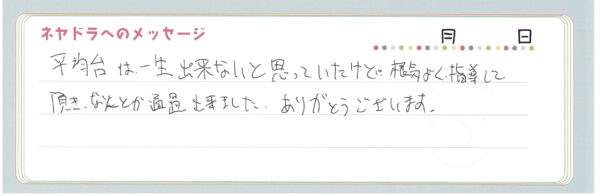 ネヤドラへのメッセージ
月 日
平均台は一生出来ないと思っていたけど、根気よく指導して
頂き、なんとか通過出来ました。ありがとうございます。